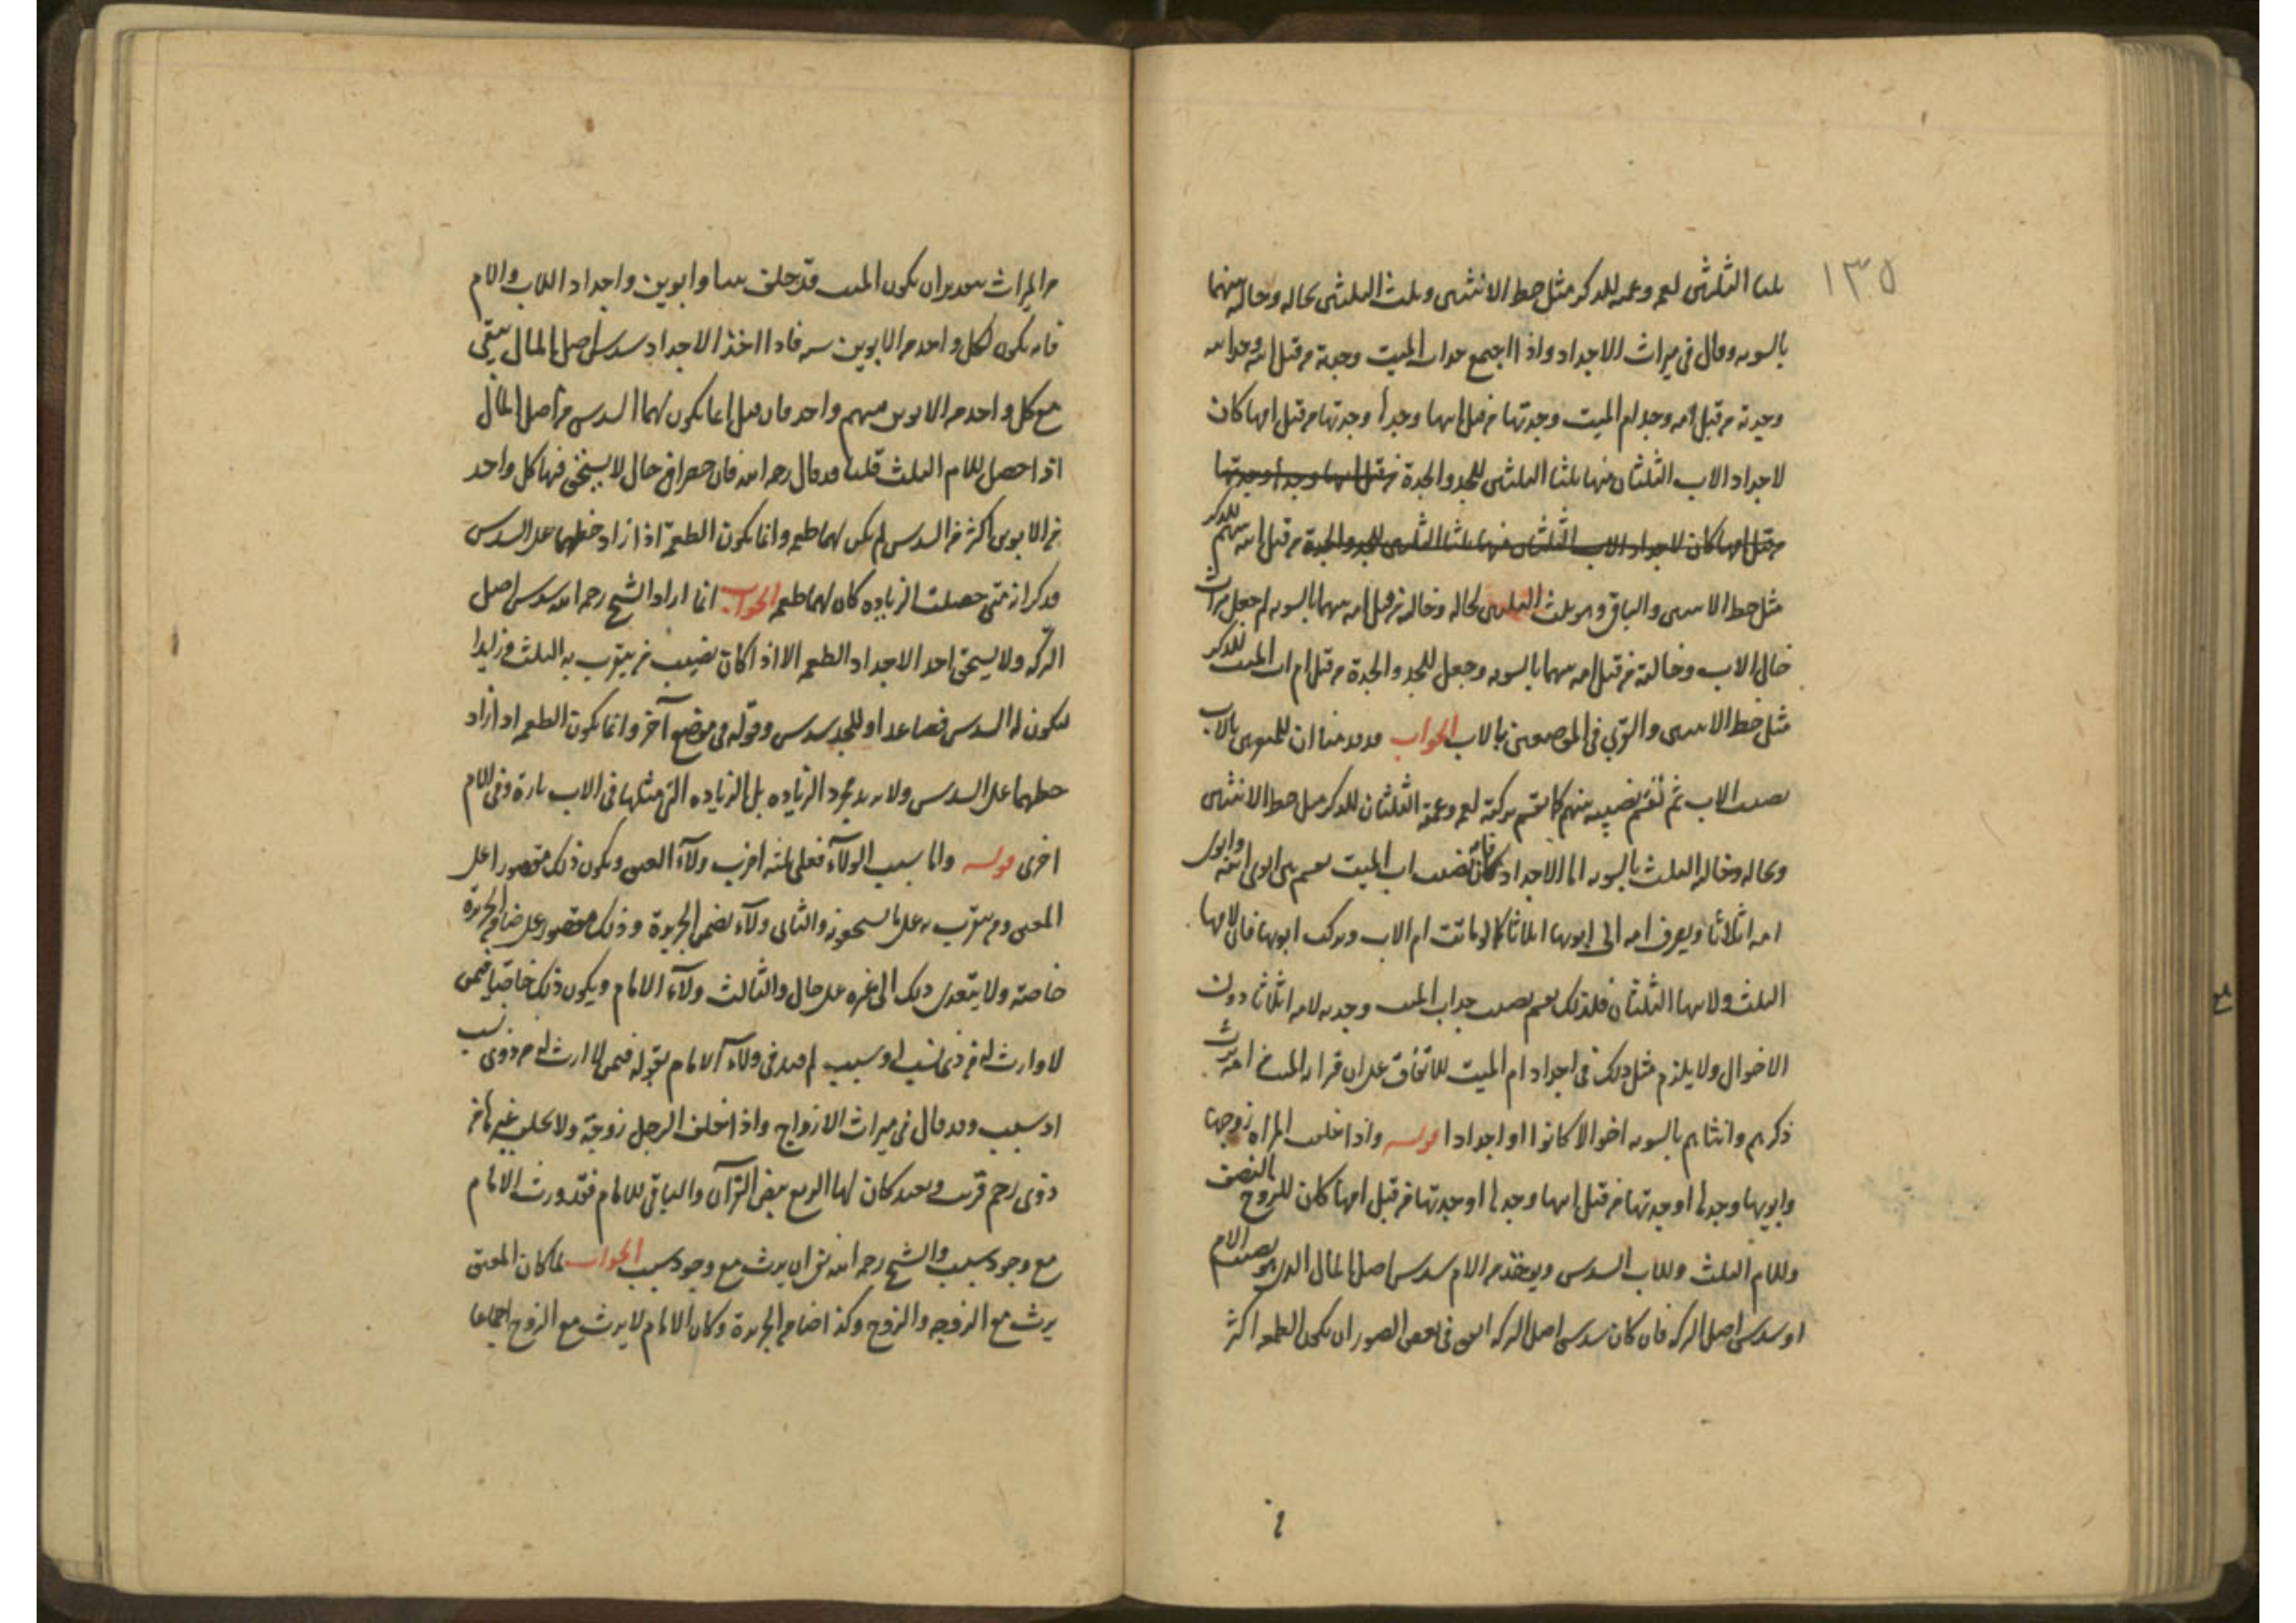 ١٣٥
ثلثا الثلثين لعمه وعمته للذكر مثل حظ الانثيين وثلث الثلثين لخاله وخالته بينهما
بالسويه وقال في ميراث الاجداد واذا اجتمع جدا اب الميت وجدته من قبل ابيه وجد ابيه
وجدته من قبل امه وجد ام الميت وجدتها من قبل ابيها وجدها وجدتها من قبل امها كان
لاجداد الاب الثلثان منها ثلثا الثلثين للجد والجدة من قبل ابيها وجدها وجدتها
من قبل امها كان لاجداد الاب الثلثان منها ثلثا الثلثين للجد والجدة من قبل ابيه بينهم للذكر
مثل حظ الانثيين والباقي وهو ثلث الثلثين لخاله وخالته من قبل امه بينهما بالسويه ثم جعل ميراث
خال الاب وخالته من قبل امه بينهما بالسويه وجعل للجد والجدة من قبل ام اب الميت للذكر
مثل حظ الانثيين والقربى في الموضعين بالاب الجواب قد قدمنا ان للمتقربين بالاب
نصيب الاب ثم نقسم نصيبه بينهم كما نقسم تركته لعمه وعمته الثلثان للذكر مثل حظ الانثيين
ولخاله وخالته الثلث بالسويه اما الاجداد فان نصيب اب الميت يقسم بين ابوي ابيه وابوي
امه اثلاثا ويصرف امه الى ابويها اثلاثا كما لو ماتت ام الاب وتركت ابويها فان لامها
الثلث ولابيها الثلثان فلذلك يقسم نصيب جد اب الميت وجدته لامه اثلاثا دون
الاخوال ولا يلزم مثل ذلك في اجداد ام الميت للاتفاق على ان قرابة الميت من امه يرث
ذكرهم وانثاهم بالسويه اخوالا كانوا او اجدادا قوله واذا خلفت المراه زوجها
وابويها وجدها او جدتها من قبل ابيها وجدها او جدتها من قبل امها كان للزوج النصف
وللام الثلث وللاب السدس ويؤخذ من الام سدس اصل المال الذي هو نصيب الام
او سدس اصل التركه فان كان سدس اصل التركه اتفق في بعض الصور ان تكون الطعمه اكثر
من الميراث بتقدير ان يكون الميت قد خلف بنتا وابوين واجداد اللاب والام
فانه يكون لكل واحد من الابوين سهم فاذا اخذ الاجداد سدس اصل المال يبقى
مع كل واحد من الابوين سهم واحد فان قيل انما يكون لهما السدس من اصل المال
اذا حصل للام الثلث قلنا قد قال رحمه الله فان حصل في حال لا يستحق فيها كل واحد
من الابوين اكثر من السدس لم يكن لهما طعمه وانما يكون الطعمة اذا زاد حظهما على السدس
فذكر انه متى حصلت الزياده كان لهما طعمه الجواب انما اراد الشيخ رحمه الله سدس اصل
التركه ولا يستحق احد الاجداد الطعمه الا اذا كان نصيب من يتقرب به الثلث فزايدا
ليكون له السدس فصاعدا وللجد سدس وقوله في موضع آخر وانما يكون الطعمه اذا زاد
حظهما على السدس ولا يريد مجرد الزياده بل الزياده التي مثلها في الاب تارة وفي الام
اخرى قوله واما سبب الولآء فعلى ثلثه اضرب ولآء العتق ويكون ذلك مقصورا على
المعتق ومن يتقرب به على ما يستحقونه والثاني ولآء تضمن الجريرة وذلك مقصور على ضامن الجريرة
خاصة ولا يتعدى ذلك الى غيره على حال والثالث ولآء الامام ويكون ذلك خاصة فيمن
لا وارث له من ذي نسب او سبب ثم قيد في ولاء الامام بقوله فيمن لا وارث له من ذوي نسب
او سبب وقد قال في ميراث الازواج واذا خلف الرجل زوجة ولا يخلف غيرها من
ذوي رحم قريب وبعيد كان لها الربع بنص القرآن والباقي للامام فقد ورث الامام
مع وجود سبب والشيخ رحمه الله نفى ان يرث مع وجود سبب الجواب لما كان المعتق
يرث مع الزوجه والزوج وكذا ضامن الجريرة وكان الامام لا يرث مع الزوج اجماعا